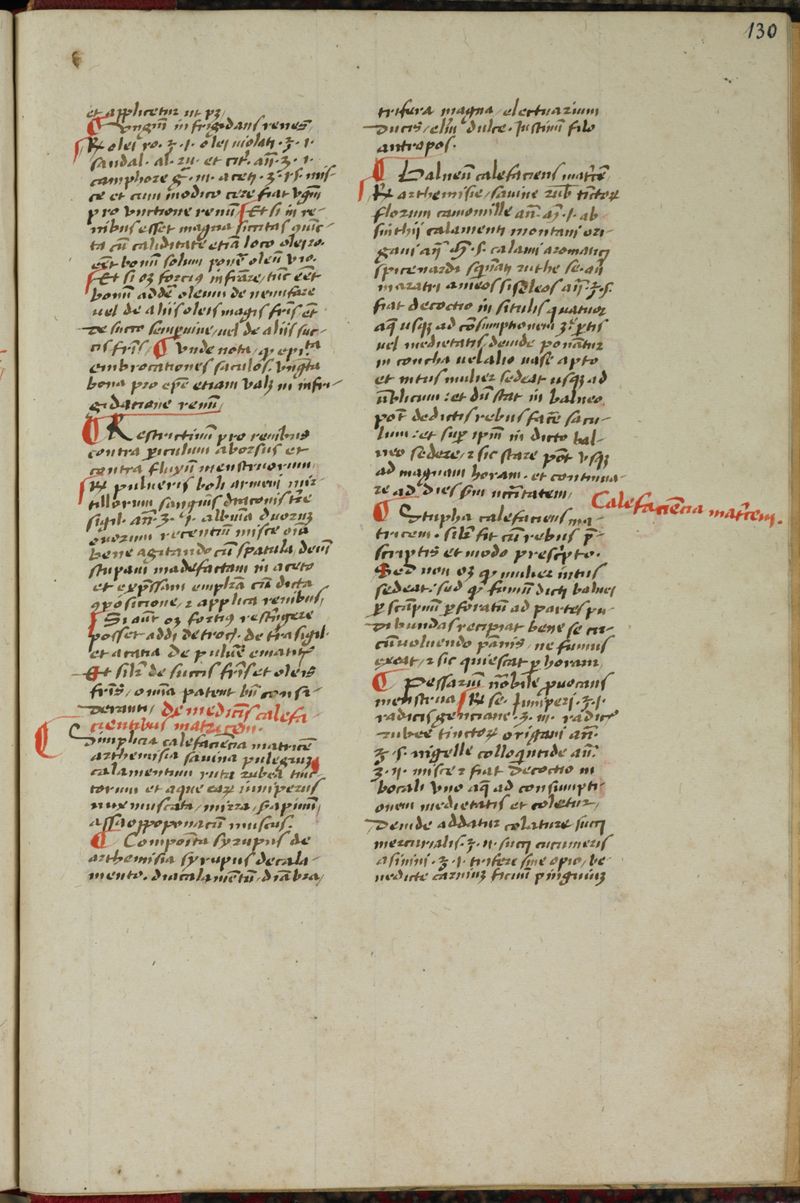 130
et applicetur ut pꝫ
¶ Vngm̄ in frigidans renes
℞ olei ro. ʒ. i. olei violati. ʒ. i.
sandal. al. ru. et cit. an̄. ʒ. i.
camphore g̃. iii. aceti. ʒ. i s. mis-
ce et cum modico cere fiat vgm̄
pro vnctione renū Et si in re-
nibus esset magna siccitas quinc-
ta cū caliditate etiā loco olei ro.
eēt bonū solum ponē oleū vio.
Et si oꝫ forciꝰ infrīare, tūc eēt
bonū addē oleum de nenufare
uel de aliis oleis magis frīs et̄
de succo semp̱uiue, uel de aliis suc-
cis frīs, ¶ Vnde nota, qꝫ epi.ta
embrocationes saculos. vngēta
bona pro epē etiam valꝫ in infri-
gidacione renū
¶ Restrictiuū pro renibus
contra p̱iculum aborsus et
contra fluxū menstruorum
℞ pulueris boli armeni mir-
tillorum sanguis draconis tr̄e
sigil. an̄. ʒ. i. albumīa duorꝫ
ouorum recentiū misce oīa
bene agitando cū spatula, deīn
stupam madefactam in aceto
et exp̄ssam emplr̄a cū dicta
ꝯposicione, ⁊ applica renibus,
Si aūt oꝫ fortiꝰ restringere
posset addi de troc. de tra sigil.
et acatia de puluē ematit̄
Et silr̄ de succis frīs et oleis
frīs, omīa patent bn̄ consi-
deranti, De medicīs calefa-
cientibus matricem.
Simplicia calefaciēcia matricē
arthemisia sauina pulegiuꝫ
calamentum ruta rubea tinc-
torum et aque eaꝝ iuniperus
nux muscata, mirra, sapinum
assa oppoponacū muscus.
¶ Composita syrupus de
arthemisia syrupus de cala-
mento. diacalamētū, diābra,
trifera magna, electuarium
ducis, elm̄ dulce. Iustinū filo
antropos.
¶ Balneū calefaciens matrīcē
℞ arthemisie, sauine rub̄ tinctoꝝ
florum camomille an̄. ɱ̄. i. ab
sinthii calamenti montani ori-
gani an̄ ɱ̄. s. calami aromatici
spicenardi squināti ruthe se. an̄
maratri ameos siseleos an̄ ʒ. s.
fiat decoctio in situlis quatuor
aq̄ usqꝫ ad cōsumptionem 3ᵉ p̱tis
uel medietatis deinde ponātur
in concha uel alio uase apto
et intus mulier sedeat usqꝫ ad
ūblicum: et dū stat in balneo
pot̄ de dictis rebus facē sacu-
lum: et sup̱ ipm̄ in dicto bal-
neo sedere, ⁊ sic stare pōt vsqꝫ
ad magnam horam. et continua-
re ad dies sm̄ nc̄citatem,
Calefaciēcia matrīcem.
¶ Stupha calefaciens ma-
tricem. silr̄ fit cū rebus p̄-
scriptis et modo prescripto.
Sed non oꝫ qꝫ mulier intus
sedeat: sed qꝫ fumū dicti balnei
p̱ scāpnū p̱foratū ad partes pu-
dibundas recipiat bene se cir-
cūuoluendo pānis, ne fumus
exeat, ⁊ sic quiescat p̱ horam
¶ Pessariū nobile p̱uocans
menstrua, ℞ se. Juniperi. ʒ. i.
radicis genciane. ʒ. iii. radic̄
rubee tinctoꝝ origani an̄.
ʒ. s. nigelle colloquitide an̄.
ʒ. ii. misce ⁊ fiat decoctio in
bocali vno aq̄ ad consumpti-
onem medietatis et coletur,
Deinde addatur colature succi
mercurialis. ʒ. ii. succi cucumeris
asinini. ʒ. i. trifere sine opio, be-
nedicte carniuꝫ ficuū pinguiuꝫ